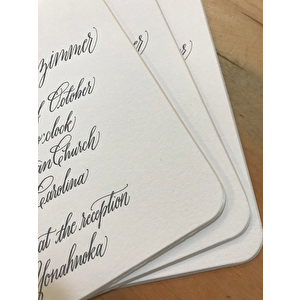 zimmer
of October
o'clock
an Church
Carolina
at the reception
Yonahnoka